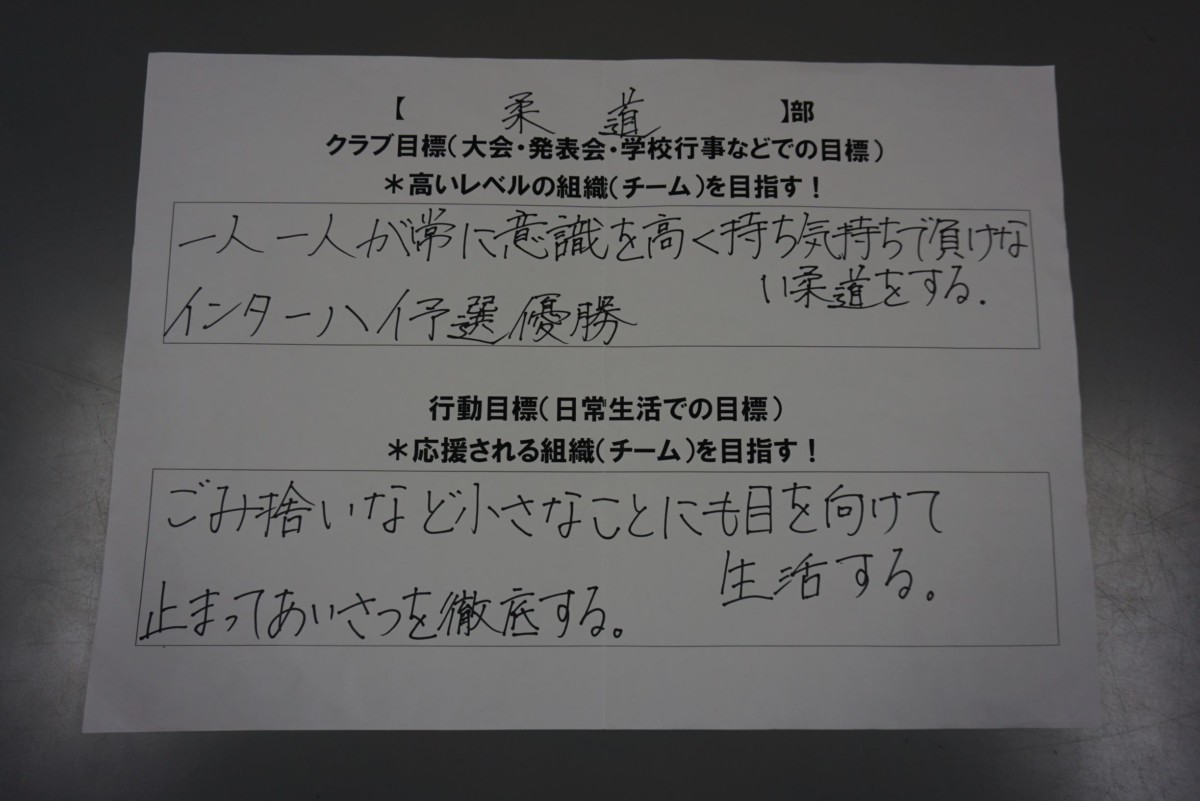 【 柔道 】部
クラブ目標(大会・発表会・学校行事などでの目標)
＊高いレベルの組織(チーム)を目指す！
一人一人が常に意識を高く持ち気持ちで負けな
い柔道をする.
インターハイ予選優勝
行動目標(日常生活での目標)
＊応援される組織(チーム)を目指す！
ごみ捨いなど小さなことにも目を向けて
生活する。
止まってあいさつを徹底する。